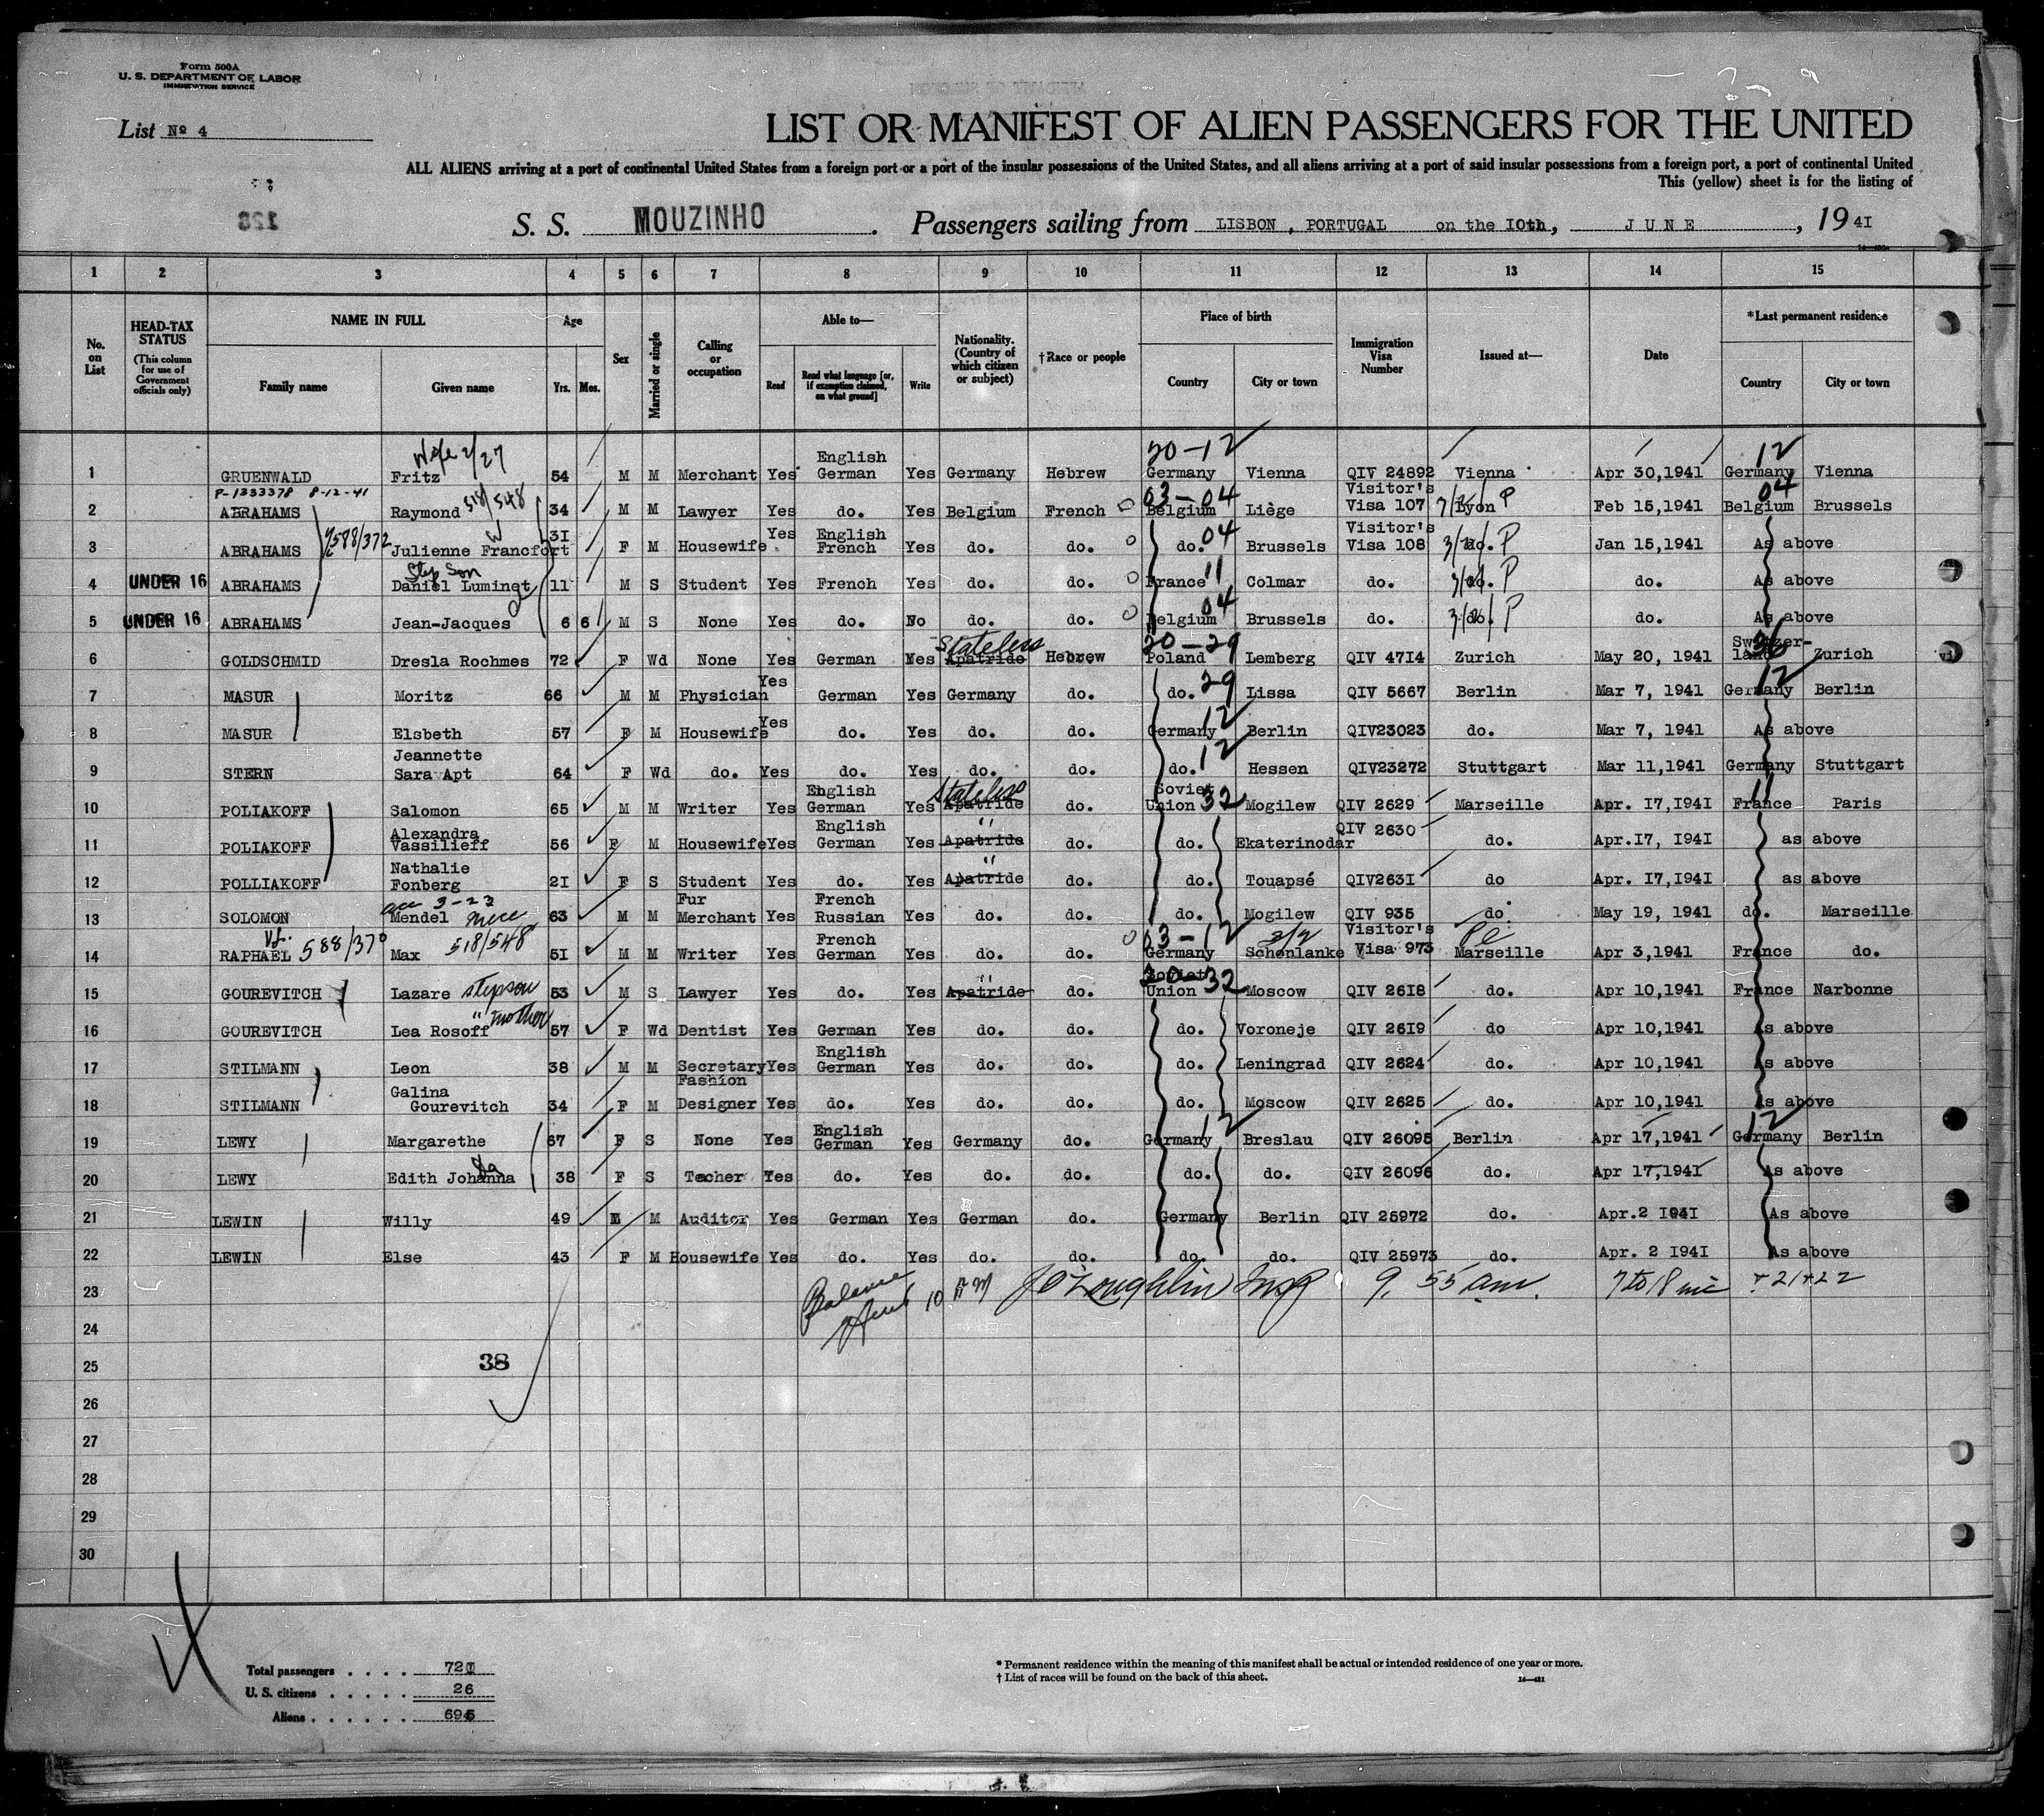 Form 500A
U. S. DEPARTMENT OF LABOR
IMMIGRATION SERVICE
List No 4
LIST OR MANIFEST OF ALIEN PASSENGERS FOR THE UNITED
ALL ALIENS arriving at a port of continental United States from a foreign port or a port of the insular possessions of the United States, and all aliens arriving at a port of said insular possessions from a foreign port, a port of continental United
This (yellow) sheet is for the listing of
S. S. MOUZINHO . Passengers sailing from LISBON, PORTUGAL on the 10th, JUNE , 19 41
1 2 3 4 5 6 7 8 9 10 11 12 13 14 15
No. on List
HEAD-TAX STATUS (This column for use of Government officials only)
NAME IN FULL Family name Given name
Age Yrs. Mos.
Sex
Married or single
Calling or occupation
Able to— Read Read what language [or, if exemption claimed, on what ground] Write
Nationality. (Country of which citizen or subject)
† Race or people
Place of birth Country City or town
Immigration Visa Number
Issued at—
Date
*Last permanent residence Country City or town
Wife 2/27 20-12 12
1 GRUENWALD Fritz 54 M M Merchant Yes English German Yes Germany Hebrew Germany Vienna QIV 24892 Vienna Apr 30,1941 Germany Vienna
P-1333378 8-12-41 518/548 03-04 04
2 ABRAHAMS Raymond 34 M M Lawyer Yes do. Yes Belgium French Belgium Liège Visitor's Visa 107 Lyon P Feb 15,1941 Belgium Brussels
588/372 W 04
3 ABRAHAMS Julienne Francfort 31 F M Housewife Yes English French Yes do. do. do. Brussels Visitor's Visa 108 do. P Jan 15,1941 As above
Step Son 11
4 UNDER 16 ABRAHAMS Daniel Luminet 11 M S Student Yes French Yes do. do. France Colmar do. do. P do. As above
04
5 UNDER 16 ABRAHAMS Jean-Jacques 6 6 M S None Yes do. No do. do. Belgium Brussels do. do. P do. As above
Stateless 20-29 36
6 GOLDSCHMID Dresla Rochmes 72 F Wd None Yes German Yes Apatride Hebrew Poland Lemberg QIV 4714 Zurich May 20, 1941 Switzerland Zurich
29 12
7 MASUR Moritz 66 M M Physician Yes German Yes Germany do. do. Lissa QIV 5667 Berlin Mar 7, 1941 Germany Berlin
12
8 MASUR Elsbeth 57 F M Housewife Yes do. Yes do. do. Germany Berlin QIV23023 do. Mar 7, 1941 As above
12
9 STERN Jeannette Sara Apt 64 F Wd do. Yes do. Yes do. do. do. Hessen QIV23272 Stuttgart Mar 11,1941 Germany Stuttgart
Stateless 32 11
10 POLIAKOFF Salomon 65 M M Writer Yes English German Yes Apatride do. Soviet Union Mogilew QIV 2629 Marseille Apr. 17,1941 France Paris
"
11 POLIAKOFF Alexandra Vassilieff 56 F M Housewife Yes English German Yes Apatride do. do. Ekaterinodar QIV 2630 do. Apr.17, 1941 as above
"
12 POLLIAKOFF Nathalie Fonberg 21 F S Student Yes do. Yes Apatride do. do. Touapsé QIV2631 do Apr. 17,1941 as above
3-23
13 SOLOMON Mendel 63 M M Fur Merchant Yes French Russian Yes do. do. do. Mogilew QIV 935 do. May 19, 1941 do. Marseille
588/370 518/548 03-12
14 RAPHAEL Max 51 M M Writer Yes French German Yes do. do. Germany Schonlanke Visitor's Visa 973 Marseille Apr 3,1941 France do.
stepson " 20-32
15 GOUREVITCH Lazare 53 M S Lawyer Yes do. Yes Apatride do. Soviet Union Moscow QIV 2618 do. Apr 10,1941 France Narbonne
" mother
16 GOUREVITCH Lea Rosoff 57 F Wd Dentist Yes German Yes do. do. do. Voroneje QIV 2619 do Apr 10,1941 As above
17 STILMANN Leon 38 M M Secretary Yes English German Yes do. do. do. Leningrad QIV 2624 do. Apr 10,1941 As above
18 STILMANN Galina Gourevitch 34 F M Fashion Designer Yes do. Yes do. do. do. Moscow QIV 2625 do. Apr 10,1941 As above
12 12
19 LEWY Margarethe 67 F S None Yes English German Yes Germany do. Germany Breslau QIV 26095 Berlin Apr 17,1941 Germany Berlin
da
20 LEWY Edith Johanna 38 F S Teacher Yes do. Yes do. do. do. do. QIV 26096 do. Apr 17,1941 As above
21 LEWIN Willy 49 M M Auditor Yes German Yes German do. Germany Berlin QIV 25972 do. Apr.2 1941 As above
22 LEWIN Else 43 F M Housewife Yes do. Yes do. do. do. do. QIV 25973 do. Apr. 2 1941 As above
23 Balance 10 JO'Loughlin Insp 9.55 am. 7 to 18 inc + 21+22
24
25 38
26
27
28
29
30
Total passengers . . . . 721
U. S. citizens . . . . . 26
Aliens . . . . . . 695
* Permanent residence within the meaning of this manifest shall be actual or intended residence of one year or more.
† List of races will be found on the back of this sheet.